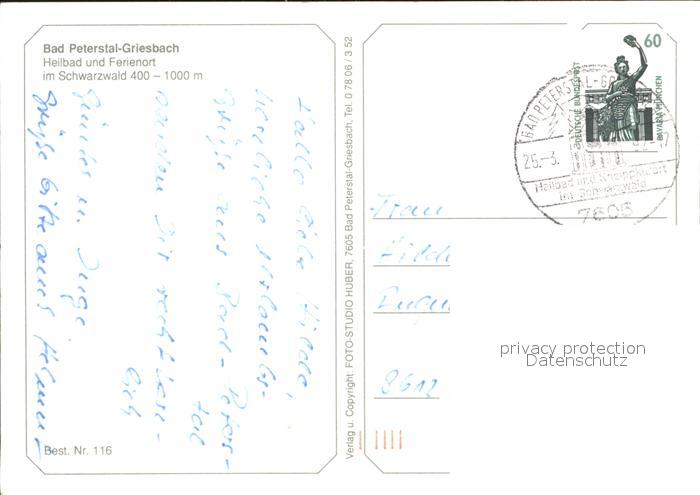 Bad Peterstal-Griesbach
Heilbad und Ferienort
im Schwarzwald 400 – 1000 m
Hallo liebe Hilde,
herzliche Urlaubs-
grüße aus Bad-Peters-
tal
Günter u. Inge
Grüße bitte auch
Best. Nr. 116
Verlag u. Copyright: FOTO-STUDIO HUBER, 7605 Bad Peterstal-Griesbach, Tel. 0 78 06 / 3 52
60
DEUTSCHE BUNDESPOST
BAVARIA MÜNCHEN
BAD PETERSTAL-G
25.-3.
Heilbad und Kneippkurort
im Schwarzwald
7605
Frau
8612
privacy protection
Datenschutz